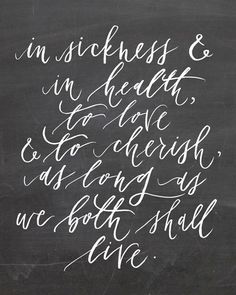 in sickness &
in health,
to love
& to cherish,
as long as
we both shall
live.